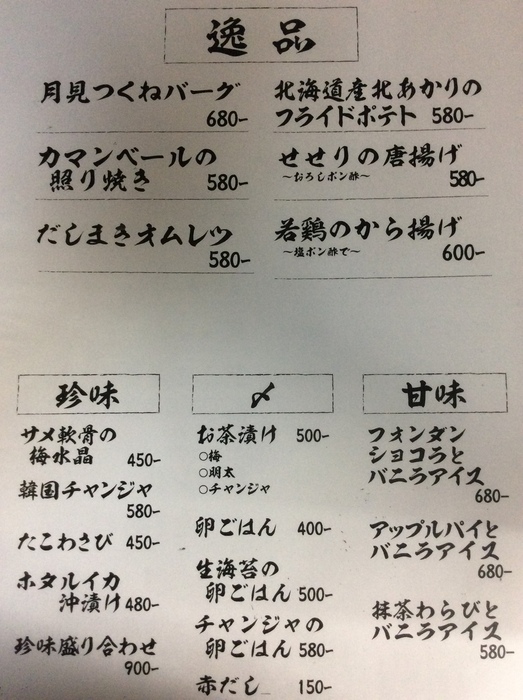 逸品
月見つくねバーグ
680-
カマンベールの
照り焼き 580-
だしまきオムレツ
580-
北海道産北あかりの
フライドポテト 580-
せせりの唐揚げ
~おろしポン酢~ 580-
若鶏のから揚げ
~塩ポン酢で~ 600-
珍味
サメ軟骨の
梅水晶 450-
韓国チャンジャ
580-
たこわさび 450-
ホタルイカ
沖漬け 480-
珍味盛り合わせ
900-
〆
お茶漬け 500-
○梅
○明太
○チャンジャ
卵ごはん 400-
生海苔の
卵ごはん 500-
チャンジャの
卵ごはん 580-
赤だし 150-
甘味
フォンダン
ショコラと
バニラアイス
680-
アップルパイと
バニラアイス
680-
抹茶わらびと
バニラアイス
580-